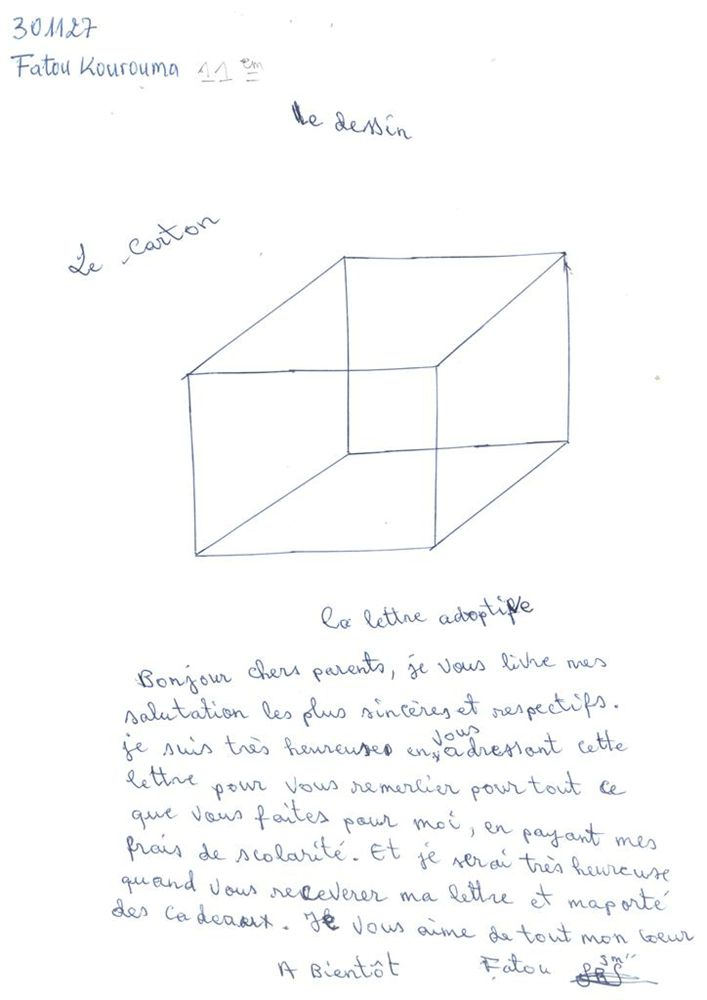 301127
Fatou Kourouma 11 em
Le dessin
Le carton
La lettre adoptive
Bonjour chers parents, je vous livre mes
salutation les plus sincères et respectifs.
je suis très heureuse en vous adressant cette
lettre pour vous remercier pour tout ce
que vous faites pour moi, en payant mes
frais de scolarité. Et je serai très heureuse
quand vous receverer ma lettre et maporté
des cadeaux. Je vous aime de tout mon coeur
A Bientôt Fatou